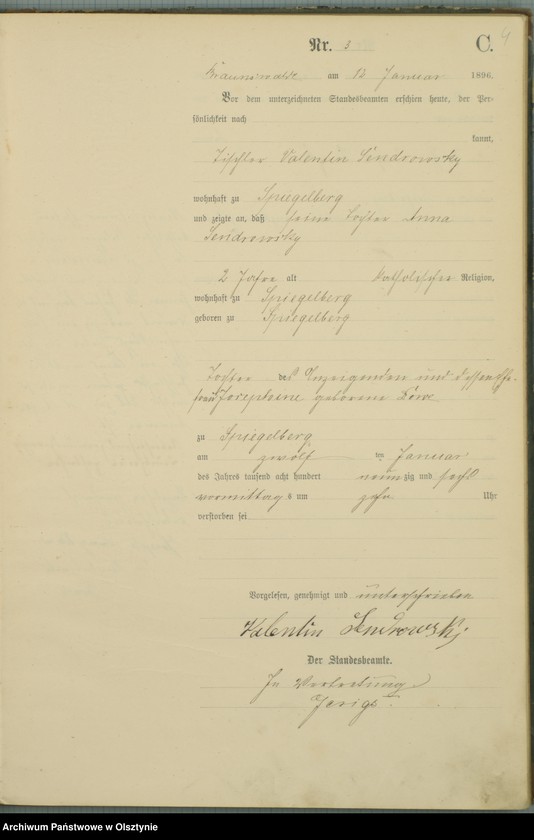 Nr. 3
C.
4
Braunswalde am 13 Januar 1896.
Vor dem unterzeichneten Standesbeamten erschien heute, der Per-
sönlichkeit nach
kannt,
Tischler Valentin Sendrowsky
wohnhaft zu Spiegelberg
und zeigte an, daß seine Tochter Anna
Sendrowsky
2 Jahre alt katholischer Religion,
wohnhaft zu Spiegelberg
geboren zu Spiegelberg
Tochter des Anzeigenden und dessen Ehe-
frau Josephine geborene
zu Spiegelberg
am zwölf ten Januar
des Jahres tausend acht hundert neunzig und sechs
vormittags um zehn Uhr
verstorben sei
Vorgelesen, genehmigt und unterschrieben
Valentin Sendrowsky
Der Standesbeamte.
In Vertretung
Archiwum Państwowe w Olsztynie